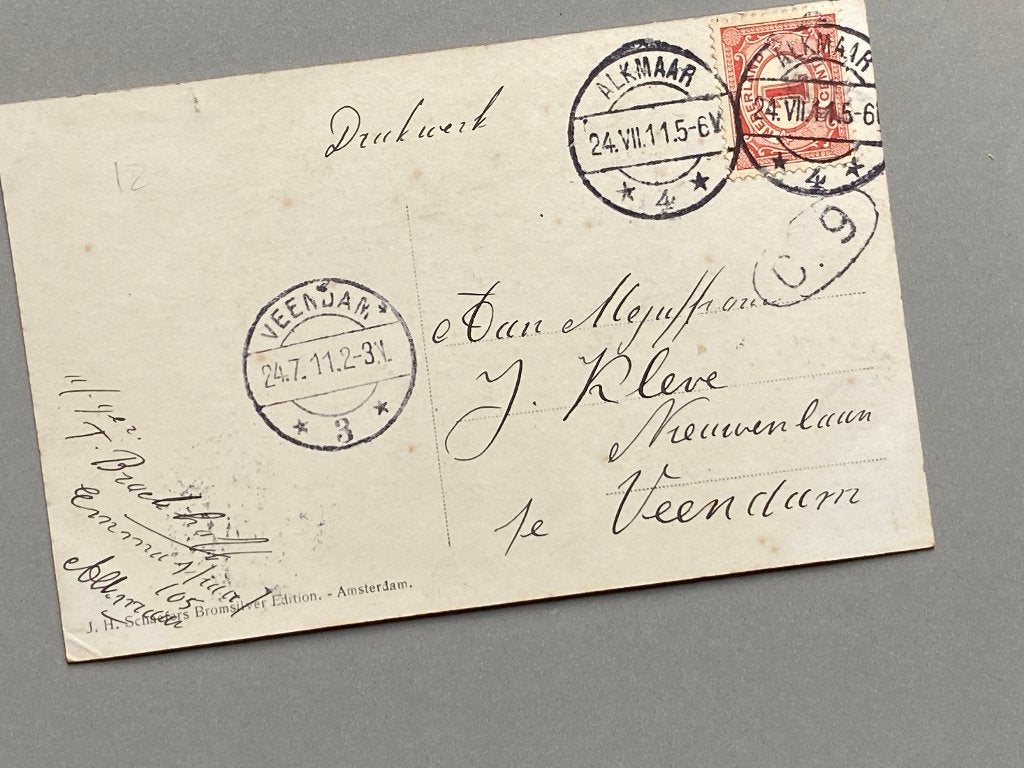 Drukwerk
ALKMAAR
24.VII.11.5-6V.
4
ALKMAAR
24.VII.11.5-6
4
NEDERLAND
1
CENT
C. 9
12
VEENDAM
24.7.11.2-3.V.
3
Aan Mejuffrouw
J. Kleve
Nieuwenlaan
te Veendam
105
Alkmaar
J. H. Schaefers Bromsilver Edition. - Amsterdam.